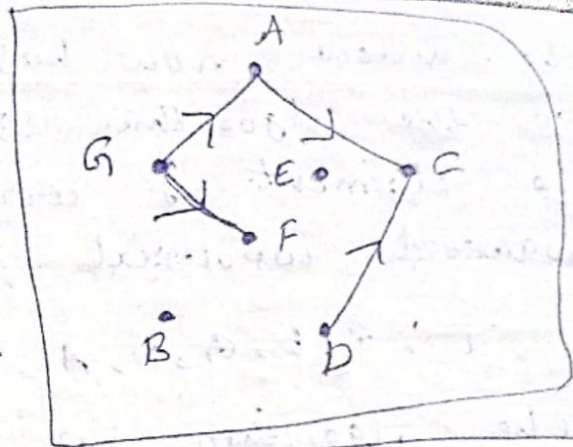 A
G
E
C
F
B
D